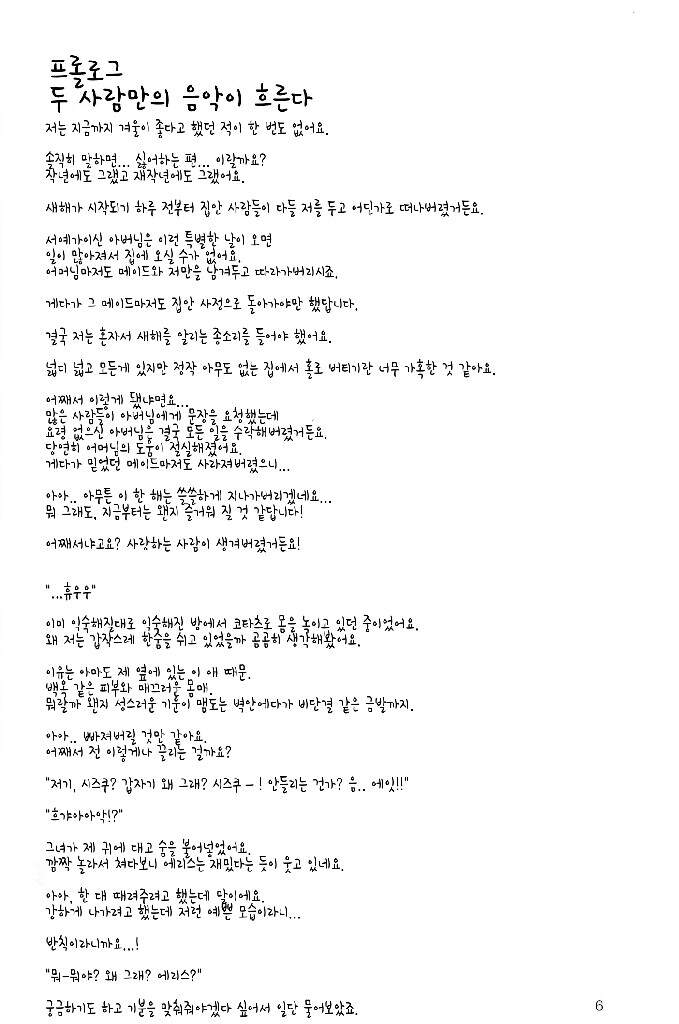 프롤로그
두 사람만의 음악이 흐른다
저는 지금까지 겨울이 좋다고 했던 적이 한 번도 없어요.
솔직히 말하면... 싫어하는 편... 이랄까요?
작년에도 그랬고 재작년에도 그랬어요.
새해가 시작되기 하루 전부터 집안 사람들이 다들 저를 두고 어딘가로 떠나버렸거든요.
서예가이신 아버님은 이런 특별한 날이 오면
일이 많아져서 집에 오실 수가 없어요.
어머님마저도 메이드와 저만을 남겨두고 따라가버리시죠.
게다가 그 메이드마저도 집안 사정으로 돌아가야만 했답니다.
결국 저는 혼자서 새해를 알리는 종소리를 들어야 했어요.
넓디 넓고 모든게 있지만 정작 아무도 없는 집에서 홀로 버티기란 너무 가혹한 것 같아요.
어째서 이렇게 됐냐면요...
많은 사람들이 아버님에게 문장을 요청했는데
요령 없으신 아버님을 결국 모든 일을 수락해버렸거든요.
당연히 어머님의 도움이 절실해졌어요.
게다가 믿었던 메이드마저도 사라져버렸으니...
아아.. 아무튼 이 한 해는 쓸쓸하게 지나가버리겠네요...
뭐 그래도, 지금부터는 왠지 즐거워 질 것 같답니다!
어째서냐고요? 사랑하는 사람이 생겨버렸거든요!
"...휴우우"
이미 익숙해질대로 익숙해진 방에서 코타츠로 몸을 녹이고 있던 중이었어요.
왜 저는 갑작스레 한숨을 쉬고 있었을까 곰곰히 생각해봤어요.
이유는 아마도 제 옆에 있는 이 애 때문.
백옥 같은 피부와 매끄러운 몸매.
뭐랄까 왠지 성스러운 기운이 맴도는 벽안에다가 비단결 같은 금발까지.
아아.. 빠져버릴 것만 같아요.
어째서 전 이렇게나 끌리는 걸까요?
"저기, 시즈쿠? 갑자기 왜 그래? 시즈쿠 - ! 안들리는 건가? 음.. 에잇!!"
"흐갸아아악!?"
그녀가 제 귀에 대고 숨을 불어넣었어요.
깜짝 놀라서 쳐다보니 에리스는 재밌다는 듯이 웃고 있네요.
아아, 한 대 때려주려고 했는데 말이에요.
강하게 나가려고 했는데 저런 예쁜 모습이라니...
반칙이라니까요...!
"뭐-뭐야? 왜 그래? 에리스?"
궁금하기도 하고 기분을 맞춰줘야겠다 싶어서 일단 물어보았죠.
6